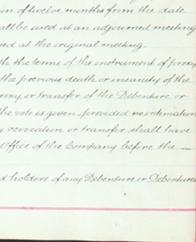 on of twelve months from the date
all be used at an adjourned meeting
ed at the original meeting.
th the terms of the instrument of proxy
the previous death or insanity of the
or transfer of the Debenture or
the vote is given, provided no intimation
revocation or transfer shall have
Office of the Company before the —
d holders of any Debenture or Debentures